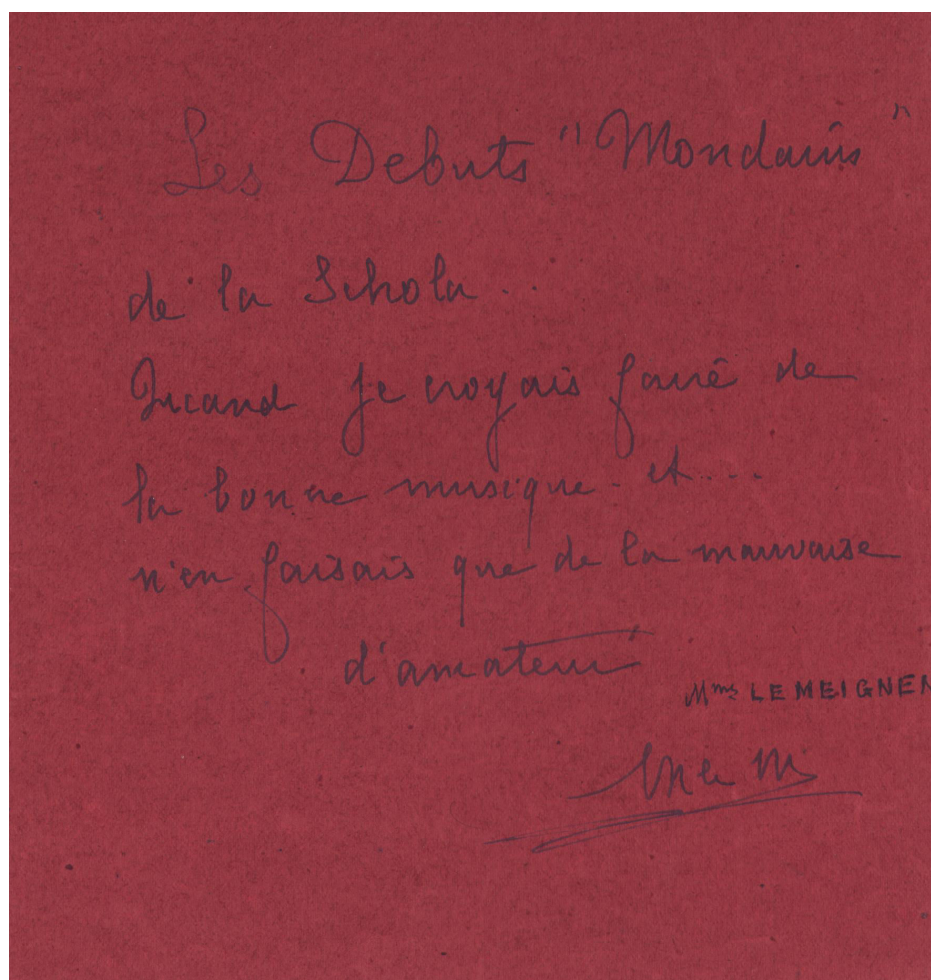 Les Debuts "Mondains"
de la Schola..
Quand je croyais faire de
la bonne musique - et....
n'en faisais que de la mauvaise
d'amateur
Mme LE MEIGNEN